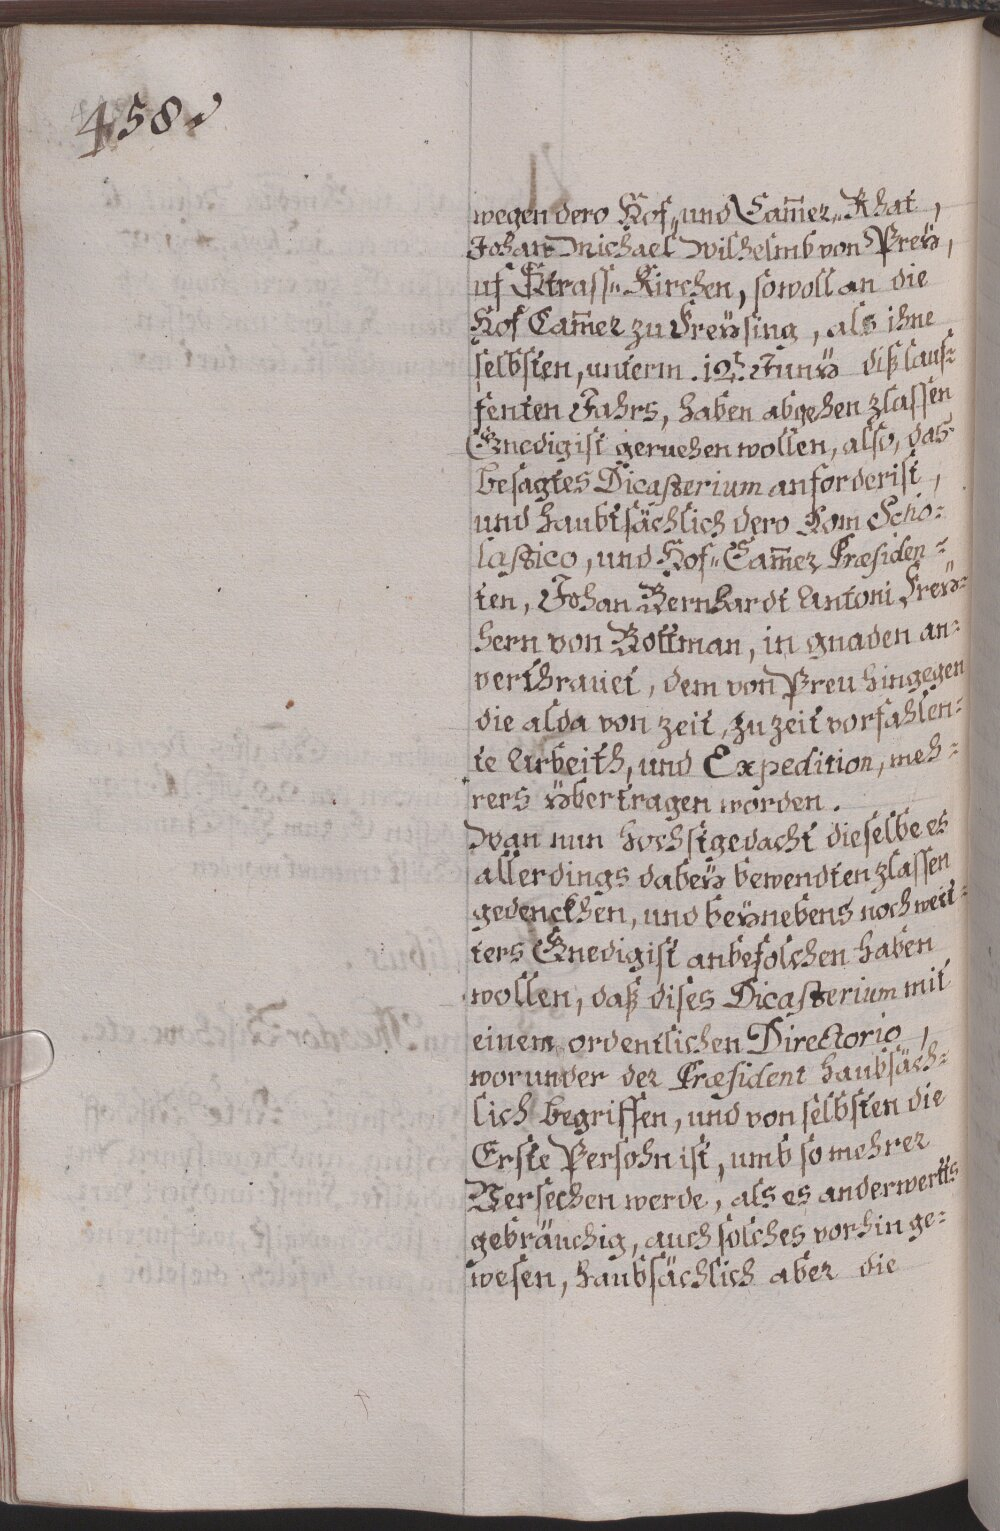 458.
wegen dero Hof„ und Cam̃er„ Rhat,
Johan Michael Wilhelmb von Preÿ,
uf Strass„ Kirchen, sowoll an die
Hof Cam̃er zu Freÿsing, als ihne
selbsten, unterm .12t. Junÿ diß lauf=
fenten Jahrs, haben abgehen zlassen
Gnedigist geruehen wollen, also, das
besagtes Dicasterium anforderist,
und haubtsächlich dero Dom Scho=
lastico, und Hof„ Cam̃er Præsiden=
ten, Johan Bernhardt Antoni Freÿ=
hern von Rottman, in gnaden an=
verthrauet, dem von Preu hingegen
die alda von zeit, zu zeit vorfahlen=
te Arbeith, und Expedition, meh=
rers ÿbertragen worden.
Wan nun hochstgedacht dieselbe es
allerdings dabeÿ bewendten zlassen
gedenckhen, und beÿnebens noch weit=
ters Gnedigist anbefolchen haben
wollen, daß dises Dicasterium mit
einem ordentlichen Directorio,
worunder der Præsident haubsäch=
lich begriffen, und von selbsten die
Erste Persohn ist, umb so mehrer
Versechen werde, als es anderwerts
gebräuchig, auch solches vorhin ge=
wesen, haubsächlich aber die